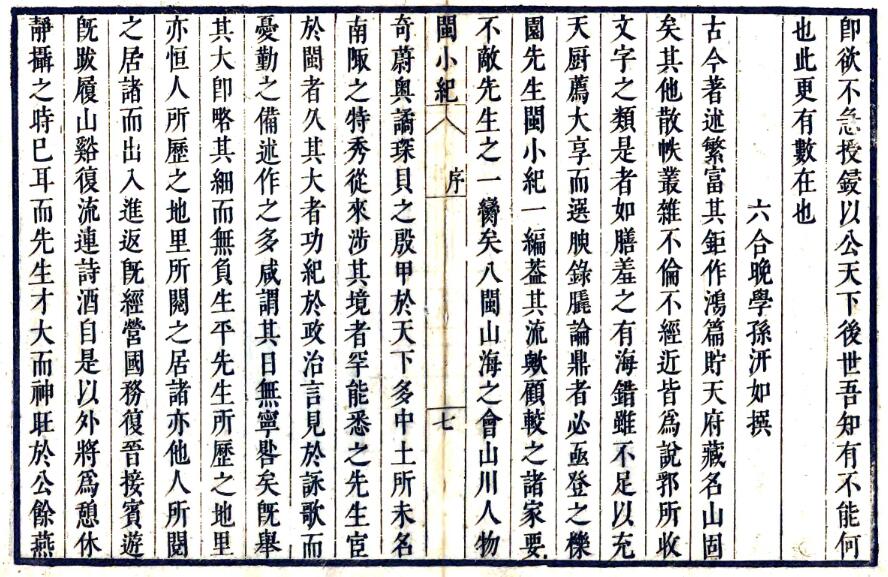 卽欲不急授鋟以公天下後世吾知有不能何
也此更有數在也
六合晚學孫汧如撰
古今著述繁富其鉅作鴻篇貯天府藏名山固
矣其他散帙叢雜不倫不經近皆爲說郛所收
文字之類是者如膳羞之有海錯雖不足以充
天厨薦大享而選腴錄髓論鼎者必亟登之櫟
園先生閩小紀一編葢其流歟顧較之諸家要
不敵先生之一臠矣八閩山海之會山川人物
閩小紀 序 七
奇蔚輿譎琛貝之殷甲於天下多中土所未名
南陬之特秀從來涉其境者罕能悉之先生宦
於閩者久其大者功紀於政治言見於詠歌而
憂勤之備述作之多咸謂其日無寧晷矣旣舉
其大卽略其細而無負生平先生所歷之地里
亦恒人所歷之地里所閱之居諸亦他人所閱
之居諸而出入進返旣經營國務復晉接賓遊
旣跋履山谿復流連詩酒自是以外將爲憩休
靜攝之時已耳而先生才大而神旺於公餘燕